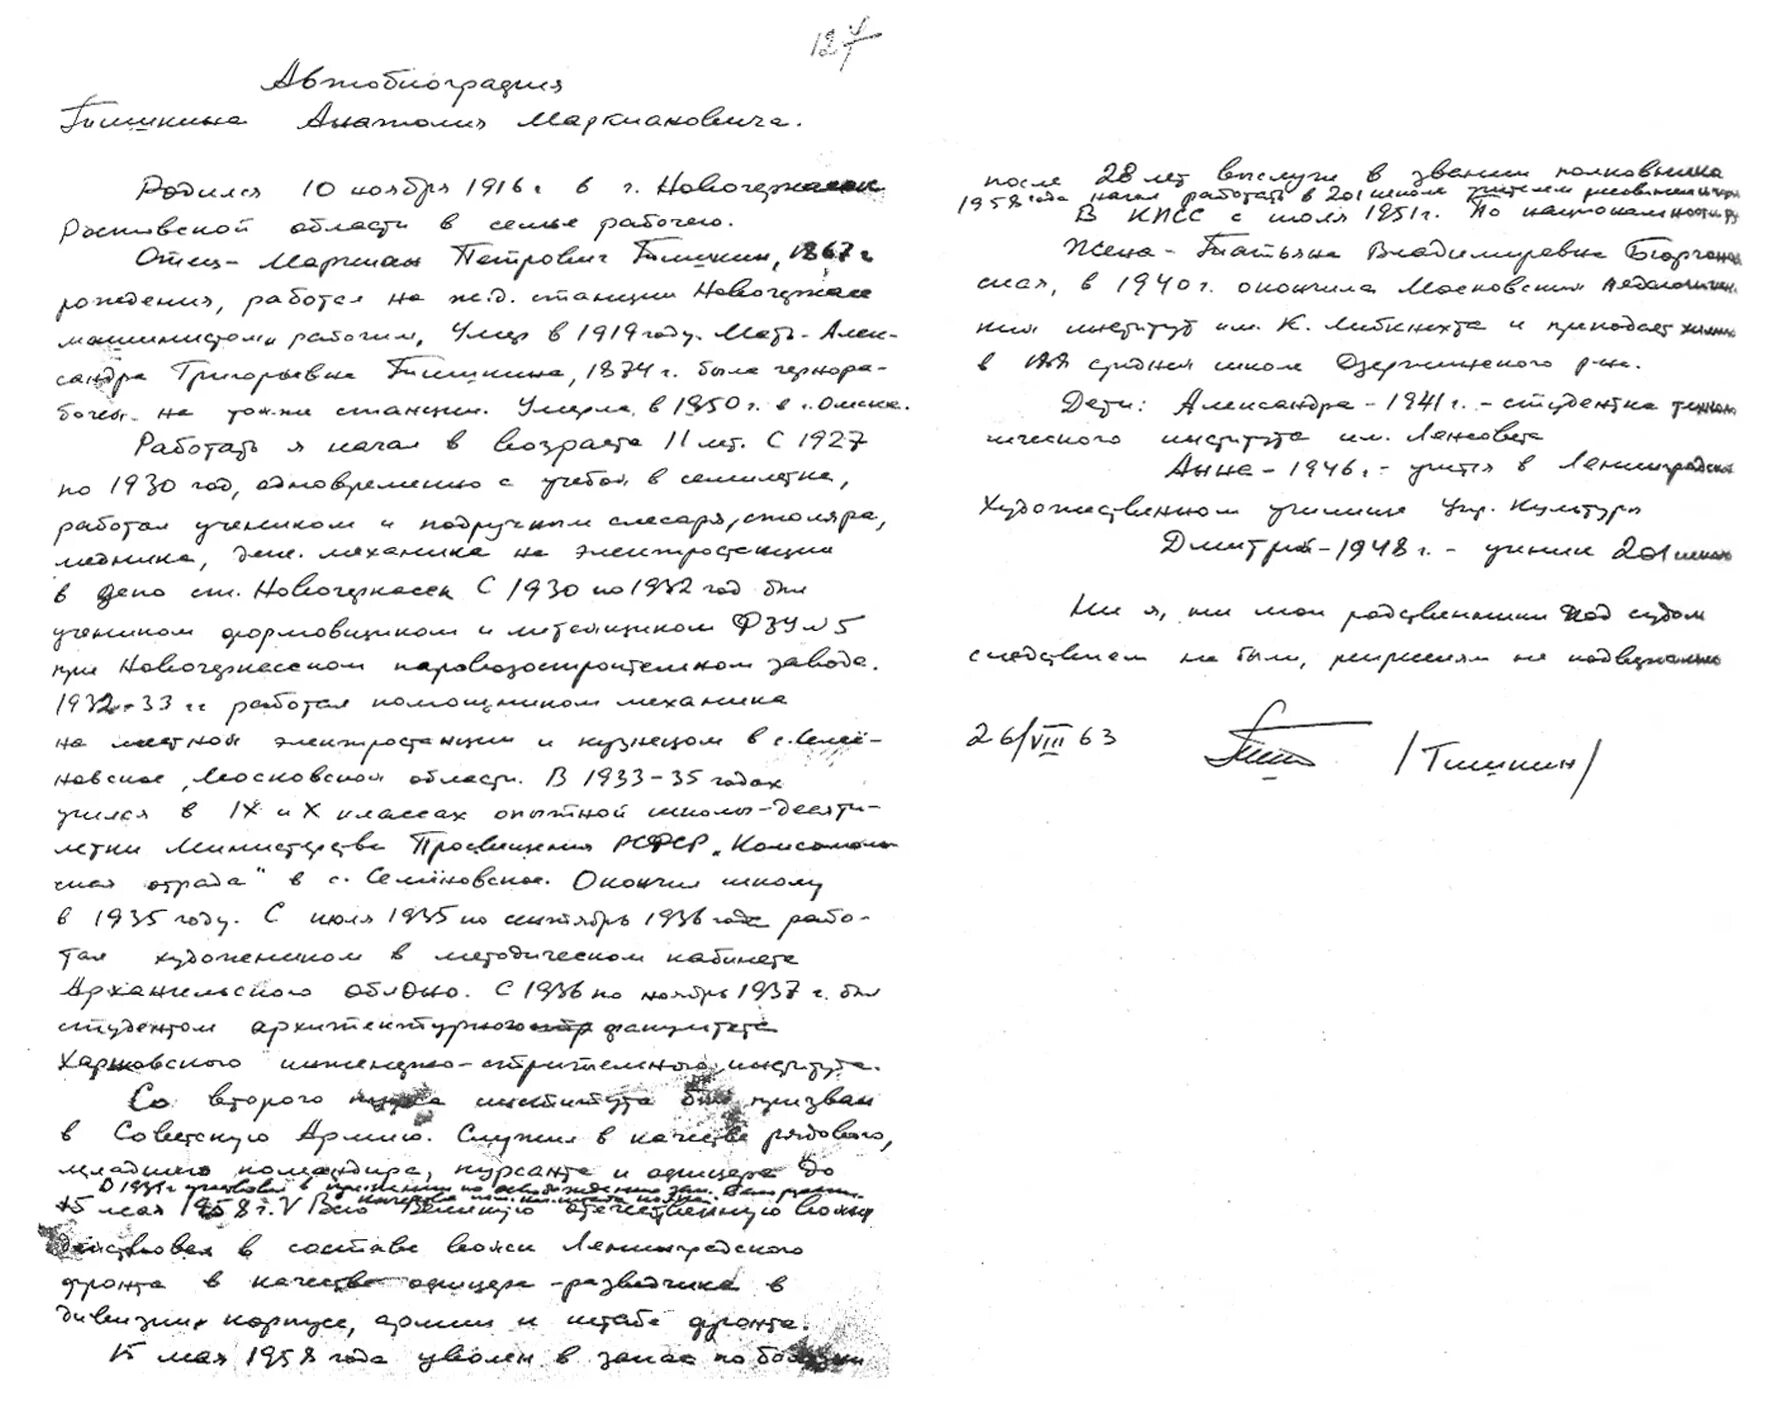 127
Автобиография
Тишкина Анатолия Маркиановича.
Родился 10 ноября 1916 г в г. Новочеркасске
Ростовской области в семье рабочего.
Отец - Маркиан Петрович Тишкин, 1867 г
рождения, работал на ж.д. станции Новочеркасс
машинистом и рабочим, Умер в 1919 году. Мать - Алек-
сандра Григорьевна Тишкина, 1874 г. была чернора-
бочей на той же станции. Умерла в 1950 г. в г. Омске.
Работать я начал в возрасте 11 лет. С 1927
по 1930 год, одновременно с учебой в семилетке,
работал учеником и подручным слесаря, столяра,
медника, деж. механика на электростанции
в депо ст. Новочеркасск С 1930 по 1932 год был
учеником формовщиком и литейщиком ФЗУ № 5
при Новочеркасском паровозостроительном заводе.
1932-33 гг работал помощником механика
на местной электростанции и кузнецом в с. Семё-
новское, Московской области. В 1933-35 годах
учился в IX и X классах опытной школы-десяти-
летки Министерства Просвещения РСФСР „Комсомоль
ская отрада" в с. Семёновское. Окончил школу
в 1935 году. С июля 1935 по сентябрь 1936 года рабо-
тал художником в методическом кабинете
Архангельского ОблОно. С 1936 по ноябрь 1937 г. был
студентом архитектурного факультета
Харьковского инженерно-строительного института.
Со второго курса института был призван
в Советскую Армию. Служил в качестве рядового,
младшего командира, курсанта и офицера до
В 1939 г участвовал в освобождению зап. Белоруссии
в качестве
15 мая 1958 г. V Всю Великую отечественную войну
действовал в составе войск Ленинградского
фронта в качестве офицера-разведчика в
дивизии, корпусе, армии и штабе фронта.
15 мая 1958 года уволен в запас по болезни
после 28 лет выслуги в звании полковника
1958 года начал работать в 201 школе учителем рисования и черч
В КПСС с июля 1951 г. По национальности ру
Жена - Татьяна Владимировна Борчанинов
ская, в 1940 г. окончила Московский педагогичес
кий институт им. К. Либкнехта и преподает химию
в средней школе Дзержинского р-на.
Дети: Александра - 1941 г. - студентка техноло
гического института им. Ленсовета
Анна - 1946 г. - учится в Ленинградском
Художественном училище Упр. Культуры
Дмитрий - 1948 г. - ученик 201 школы
Ни я, ни мои родственники под судом
следствием не были, репрессиям не подвергались
26/VIII 63
/Тишкин/